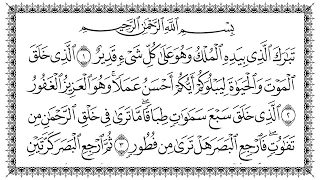 بِسْمِ اللَّهِ الرَّحْمَٰنِ الرَّحِيمِ
تَبَارَكَ الَّذِي بِيَدِهِ الْمُلْكُ وَهُوَ عَلَىٰ كُلِّ شَيْءٍ قَدِيرٌ ١ الَّذِي خَلَقَ
الْمَوْتَ وَالْحَيَوٰةَ لِيَبْلُوَكُمْ أَيُّكُمْ أَحْسَنُ عَمَلًا وَهُوَ الْعَزِيزُ الْغَفُورُ
٢ الَّذِي خَلَقَ سَبْعَ سَمَٰوَٰتٍ طِبَاقًا مَّا تَرَىٰ فِي خَلْقِ الرَّحْمَٰنِ مِن
تَفَٰوُتٍ فَارْجِعِ الْبَصَرَ هَلْ تَرَىٰ مِن فُطُورٍ ٣ ثُمَّ ارْجِعِ الْبَصَرَ كَرَّتَيْنِ